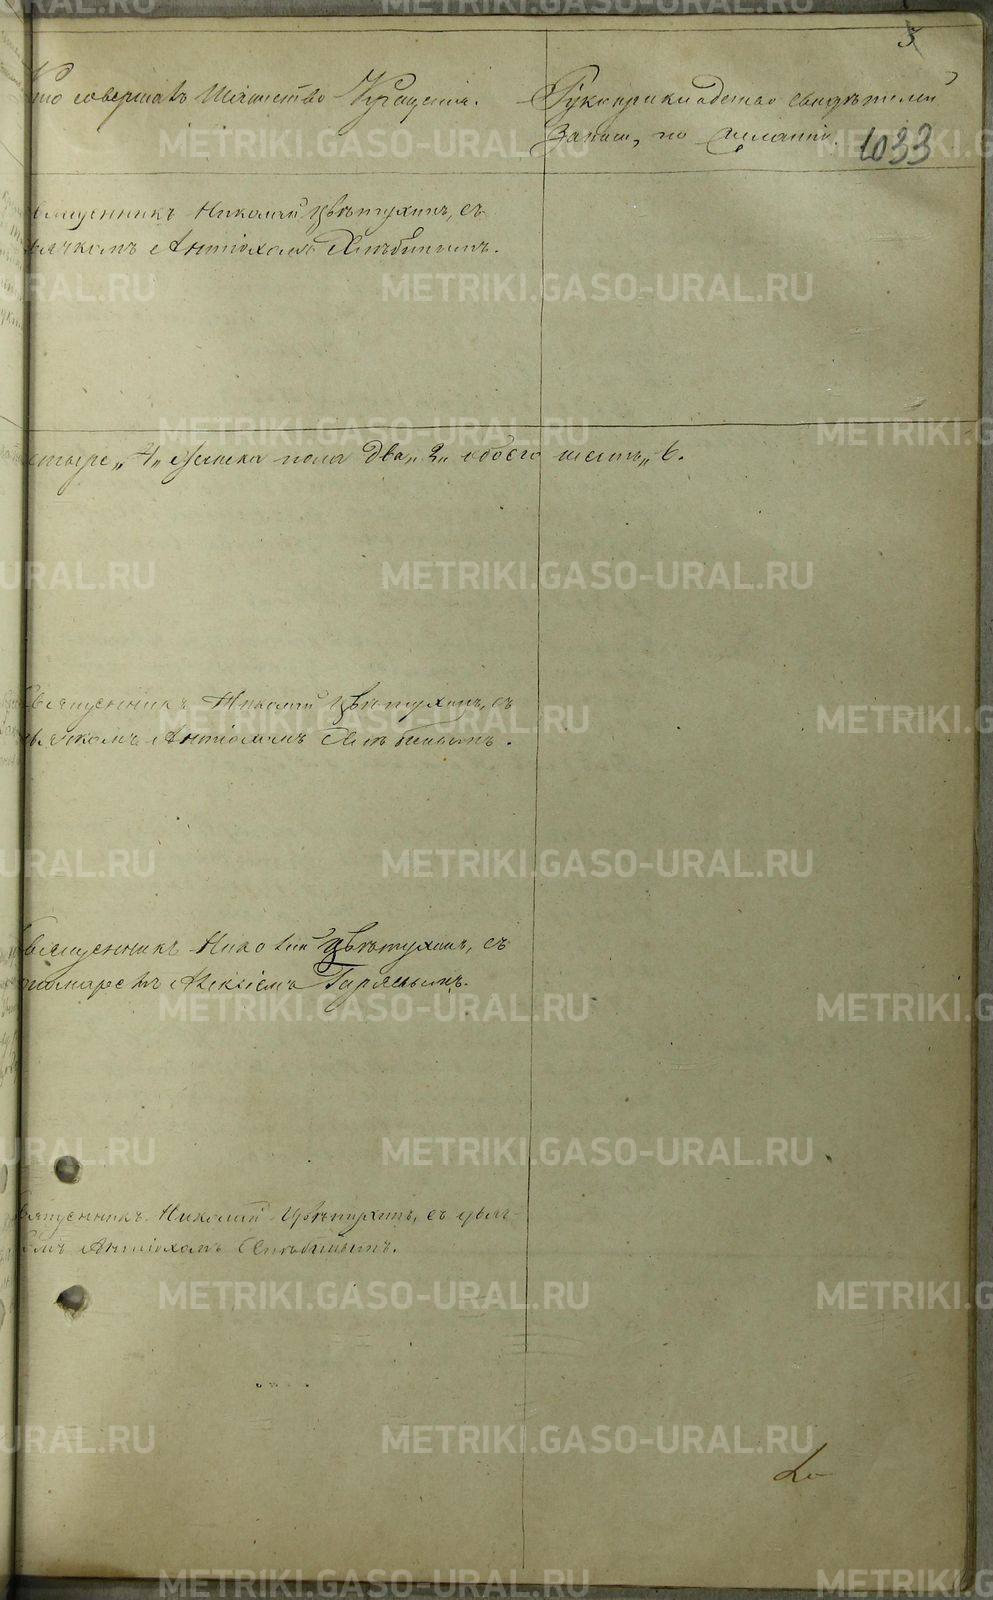 3
Кто совершалъ Таинство Крещенія.
Рукоприкладство свидѣтелей
записи, по желанію.
1033
священникъ Николай Цвѣтухинъ, съ
дьячкомъ Антіохомъ Хлѣбинымъ.
етыре „4„ женска пола два „2„ обоего шесть „6.
Священникъ Николай Цвѣтухинъ, съ
дьячкомъ Антіохомъ Хлѣбинымъ.
Священникъ Николай Цвѣтухинъ, съ
пономаремъ Алексіемъ
Священникъ Николай Цвѣтухинъ, съ дьяч-
комъ Антіохомъ Хлѣбинымъ.
METRIKI.GASO-URAL.RU